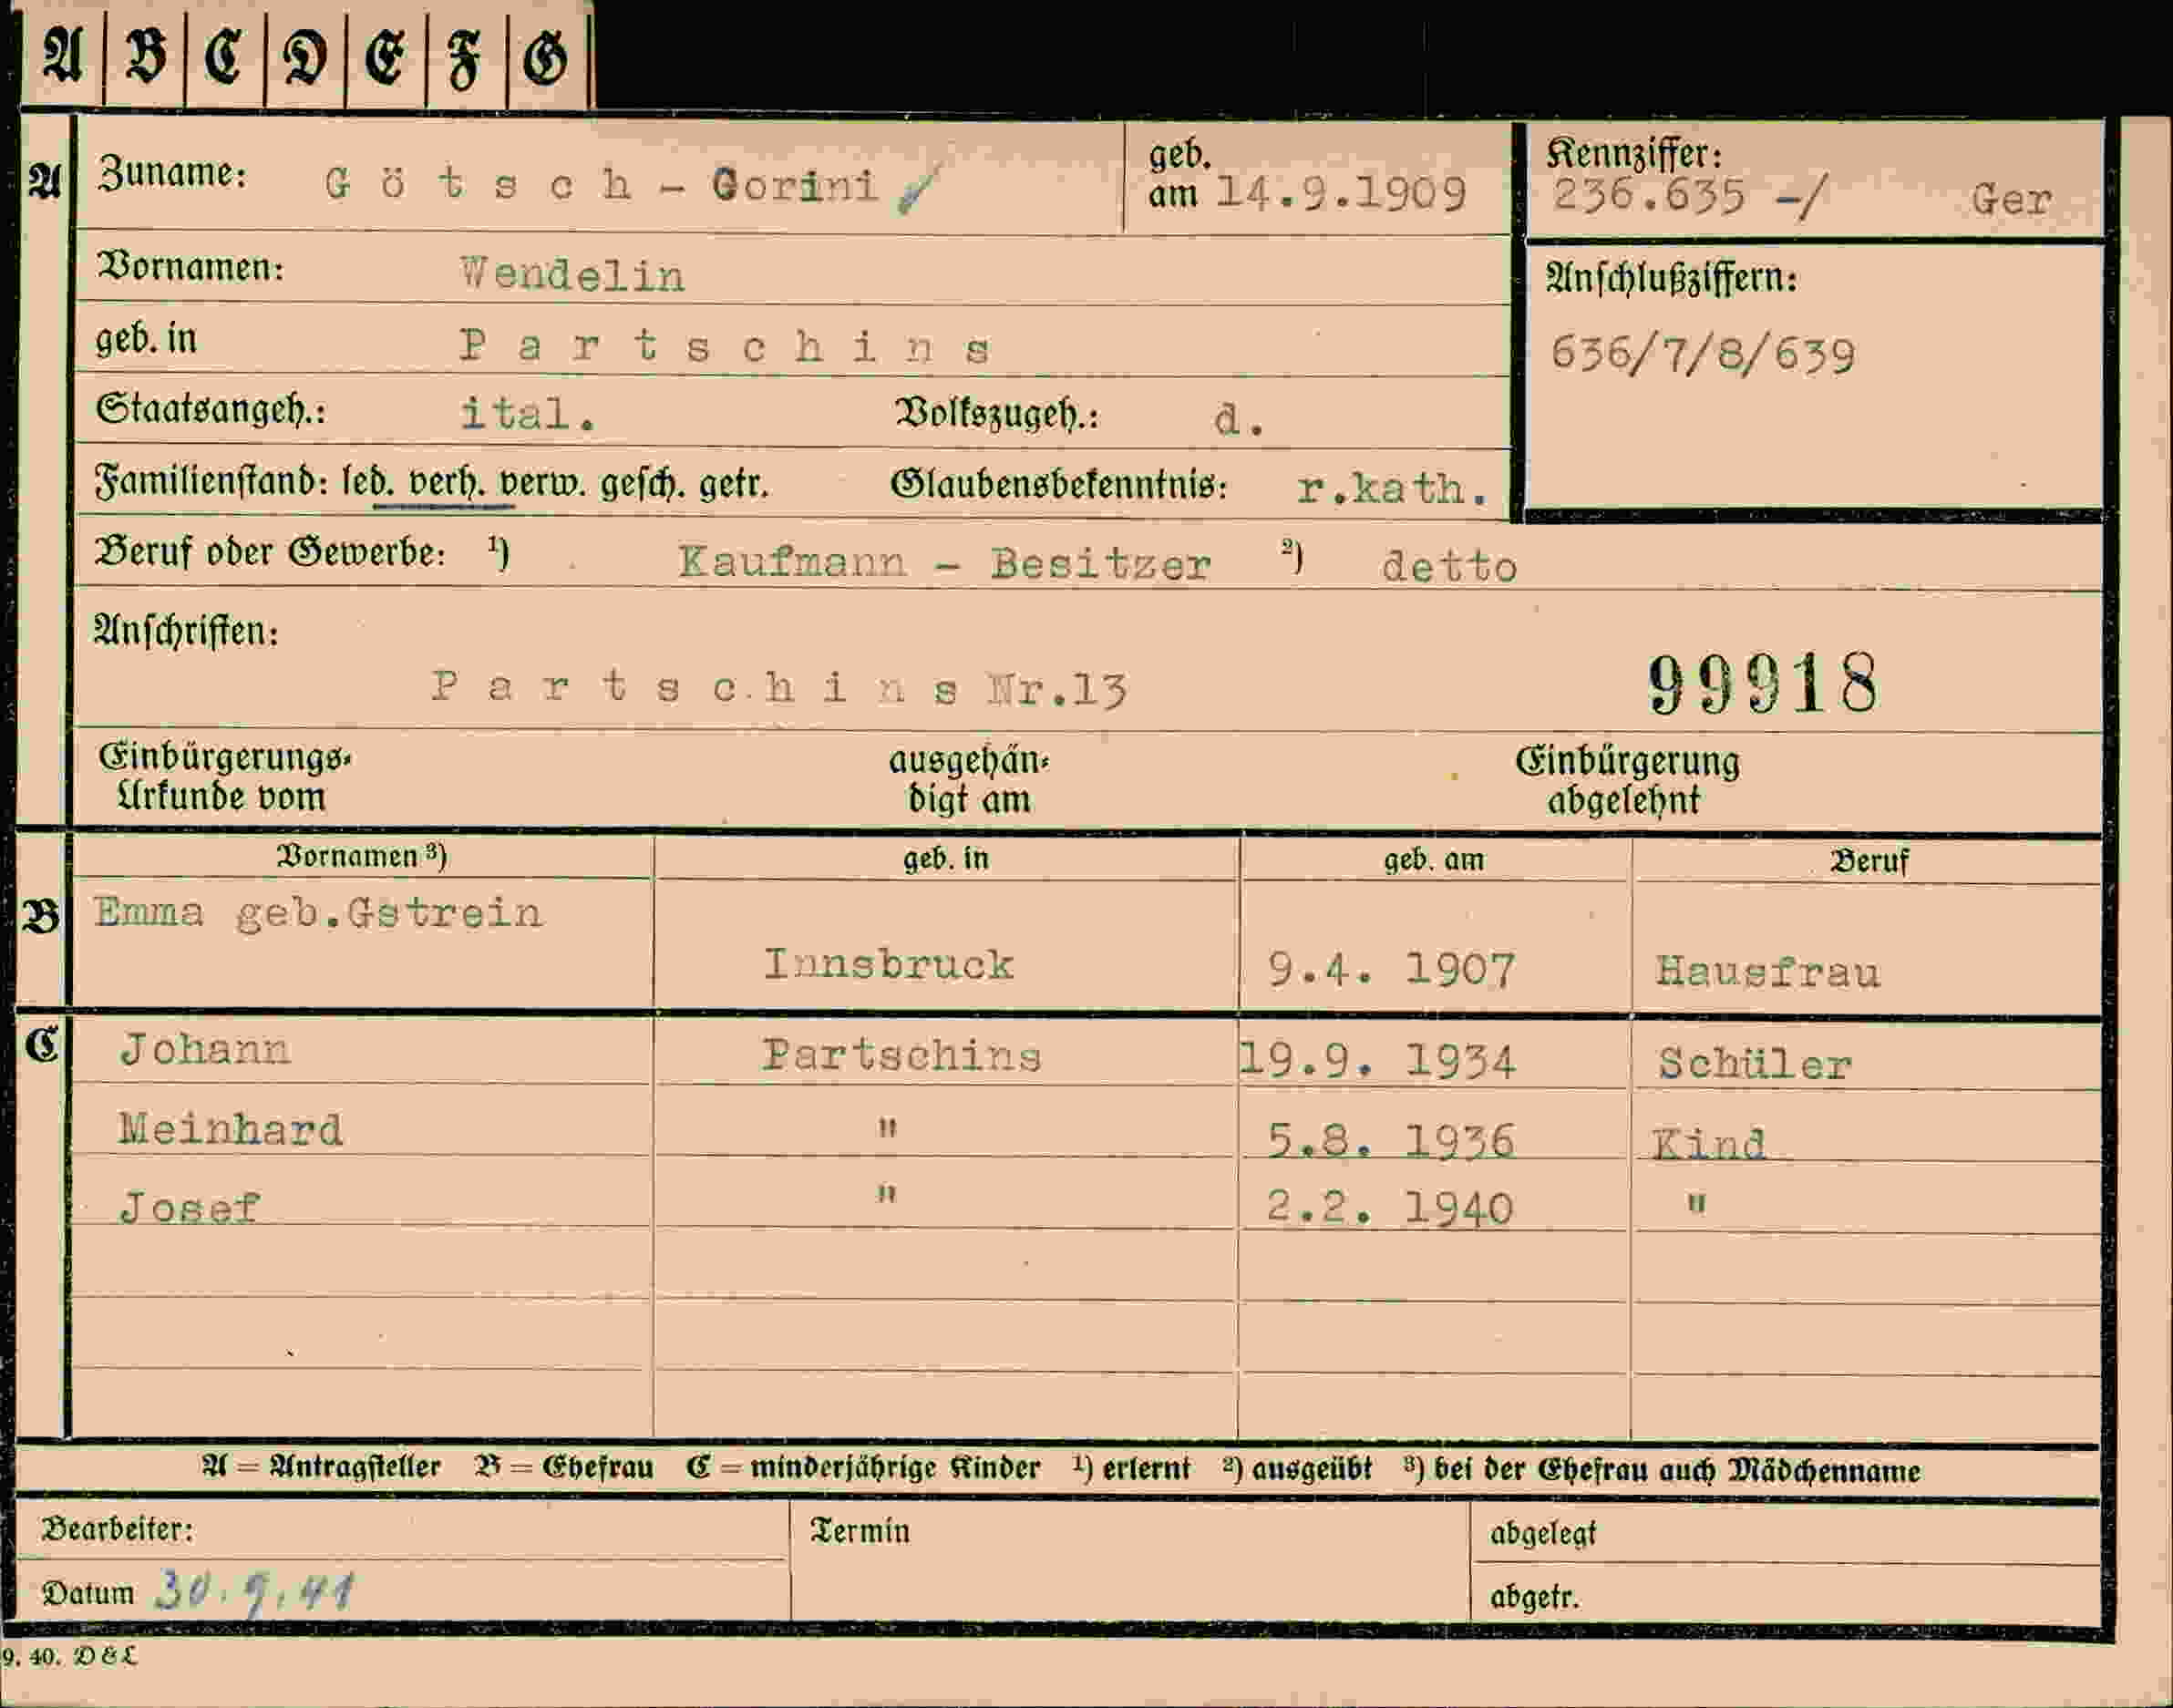 A B C D E F G
A Zuname: Götsch - Gorini geb. am 14.9.1909 Kennziffer: 236.635 -/ Ger
Vornamen: Wendelin Anschlußziffern:
geb. in Partschins 636/7/8/639
Staatsangeh.: ital. Volkszugeh.: d.
Familienstand: led. verh. verw. gesch. getr. Glaubensbekenntnis: r.kath.
Beruf oder Gewerbe: ¹) Kaufmann - Besitzer ²) detto
Anschriften:
Partschins Nr.13 99918
Einbürgerungs- ausgehän- Einbürgerung
Urkunde vom digt am abgelehnt
Vornamen ³) geb. in geb. am Beruf
B Emma geb.Gstrein
Innsbruck 9.4. 1907 Hausfrau
C Johann Partschins 19.9. 1934 Schüler
Meinhard " 5.8. 1936 Kind
Josef " 2.2. 1940 "
A = Antragsteller B = Ehefrau C = minderjährige Kinder ¹) erlernt ²) ausgeübt ³) bei der Ehefrau auch Mädchenname
Bearbeiter: Termin abgelegt
Datum 30.9.41 abgetr.
9. 40. D & L